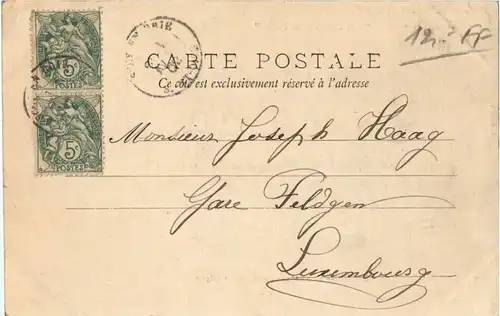 12.- FF
CARTE POSTALE
Ce côté est exclusivement réservé à l'adresse
5c
POSTES
5c
POSTES
Monsieur Joseph Haag
Gare Feldgen
Luxembourg